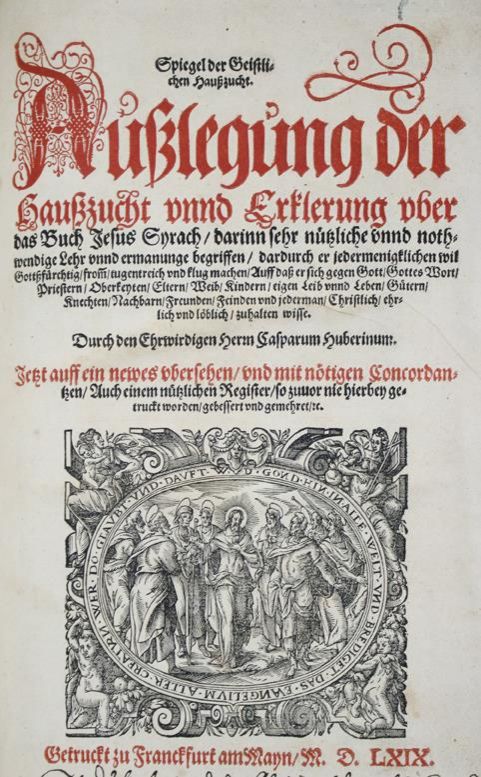 Spiegel der Geistli-
chen Haußzucht.
Außlegung der
Haußzucht vnnd Erklerung vber
das Buch Jesus Syrach / darinn sehr nützliche vnnd noth-
wendige Lehr vnnd ermanunge begriffen / dardurch er jedermenigklichen wil
Gottsfürchtig / from̃ / tugentreich vnd klug machen / Auff daß er sich gegen Gott / Gottes Wort /
Priestern / Oberkeyten / Eltern / Weib / Kindern / eigen Leib vnnd Leben / Gütern /
Knechten / Nachbarn / Freunden / Feinden vnd jederman / Christlich / ehr-
lich vnd löblich / zuhalten wisse.
Durch den Ehrwirdigen Herrn Casparum Huberinum.
Jetzt auff ein newes vbersehen / vnd mit nötigen Concordan-
tzen / Auch einem nützlichen Register / so zuuor nie hierbey ge-
truckt worden / gebessert vnd gemehret / ꝛc.
GOND·HIN·IN·ALLE·WELT·VND·BREDIGET·DAS·EVANGELIVM·ALLER·CREATVRN·WER·DO·GLAVBT·VND·DAVFT·
Getruckt zu Franckfurt am Mayn / M. D. LXIX.